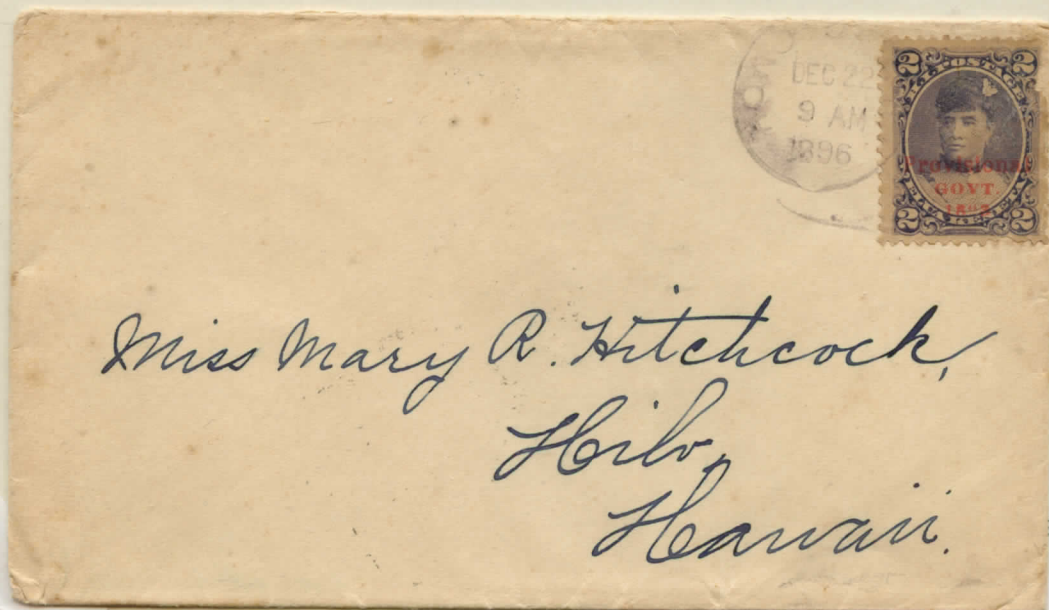 DEC 22
9 AM
1896
2 2
Provisional
GOVT.
1893
2 2
Miss Mary R. Hitchcock,
Hilo,
Hawaii.